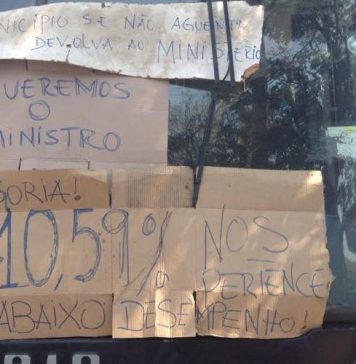 NICÍPIO SE NÃO AGUENTA
DEVOLVA AO MINISTÉRIO
UEREMOS
O
MINISTRO
GORIA!
10,59% NOS
PERIENCE
ABAIXO DESEMPENHO!